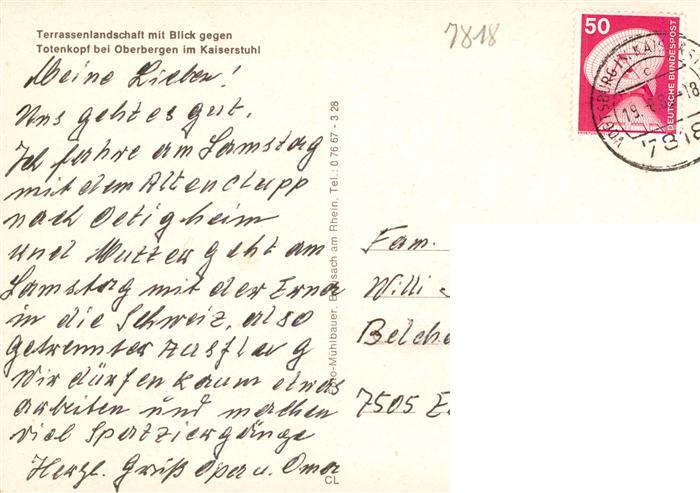 Terrassenlandschaft mit Blick gegen
Totenkopf bei Oberbergen im Kaiserstuhl
7818
50
DEUTSCHE BUNDESPOST
VOGTSBURG IM KAIS
19
18
7818
Meine Lieben!
Uns geht es gut.
Ich fahre am Samstag
mit dem Altenclupp
nach Oetigheim
und Mutter geht am
Samstag mit der Erna
in die Schweiz, also
getrennter Ausflug
Wir dürfen kaum etwas
arbeiten und machen
viel Spatziergänge
Herzl. Grüß Opa u. Oma
CL
Foto-Mühlbauer, Breisach am Rhein, Tel.: 0 76 67 - 3 28
Fam.
Willi
Belche
7505 E